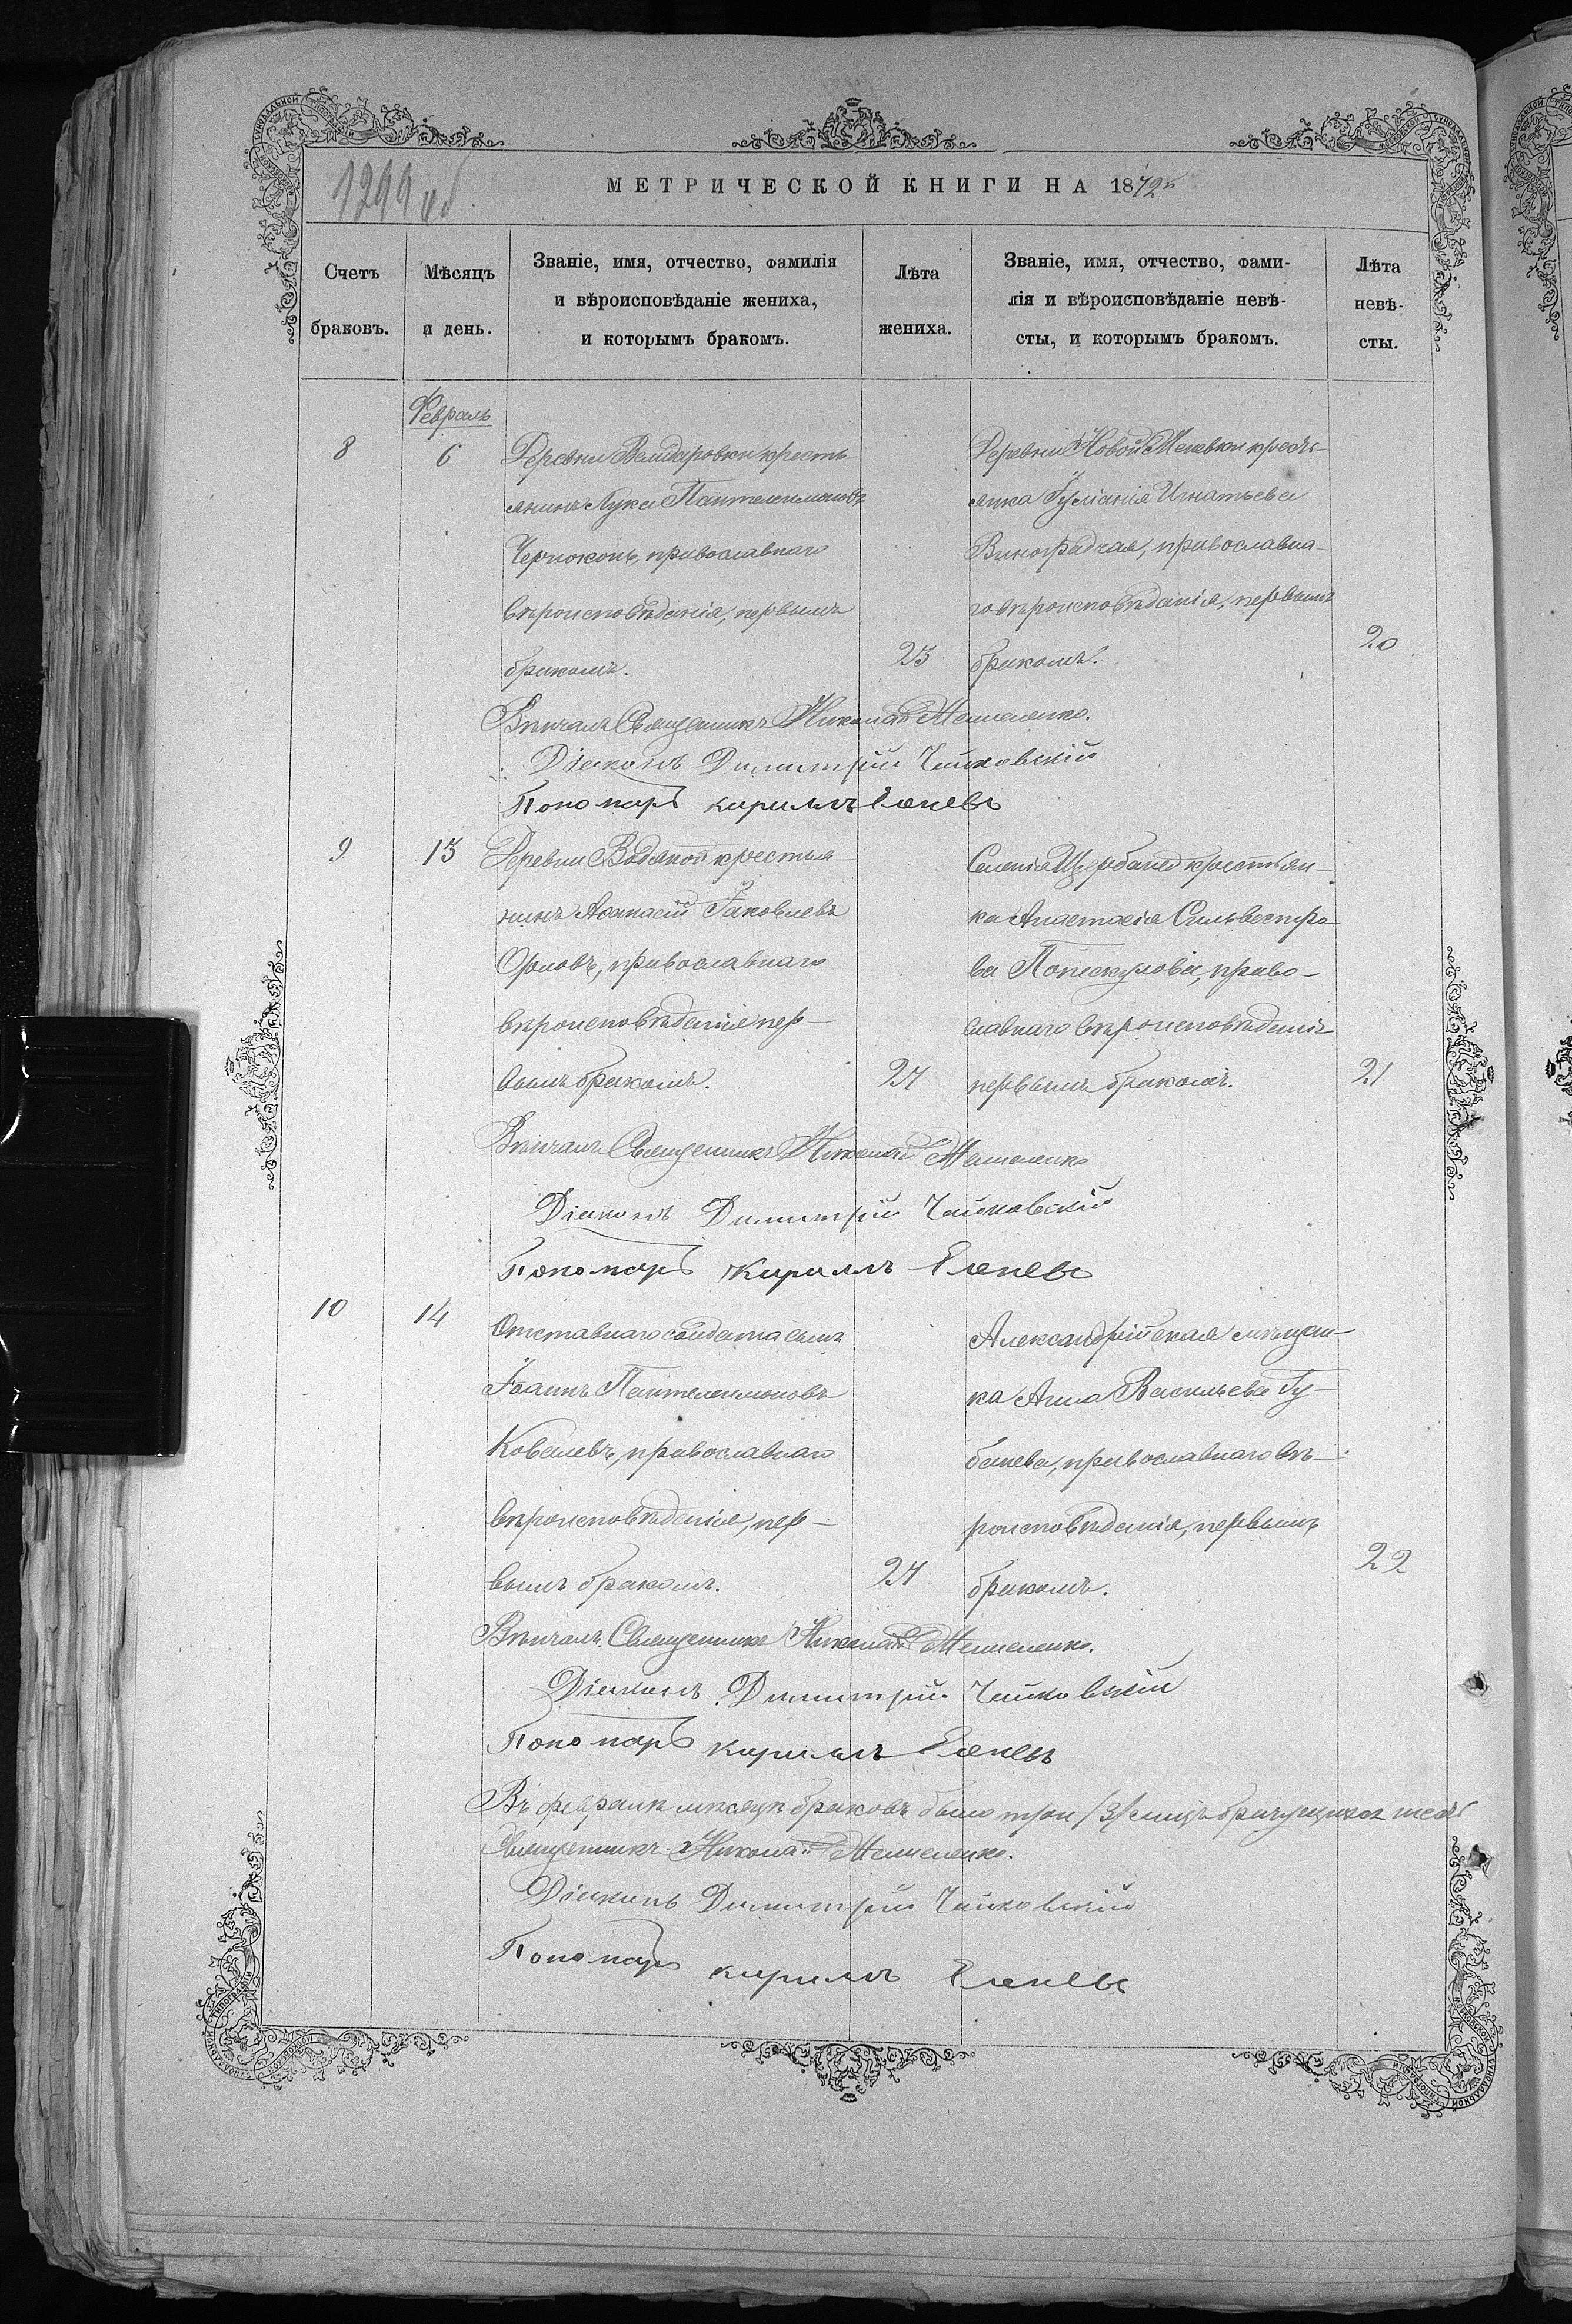 1299 об
МЕТРИЧЕСКОЙ КНИГИ НА 1872й
Счетъ браковъ.
Мѣсяцъ и день.
Званіе, имя, отчество, фамилія
и вѣроисповѣданіе жениха,
и которымъ бракомъ.
Лѣта жениха.
Званіе, имя, отчество, фами-
лія и вѣроисповѣданіе невѣ-
сты, и которымъ бракомъ.
Лѣта невѣ-
сты.
Февраль
8
6
Деревни кресть-
янинъ Лука Пантелеимоновъ
православнаго
вѣроисповѣданія, первымъ
бракомъ.
23
Деревни Новой кресть-
янка Іуліанія Игнатьева
православна-
го вѣроисповѣданія, первымъ
бракомъ.
20
Вѣнчалъ Священникъ Николай
Діаконъ Димитрій Чайковскій
Пономарь Кирилъ Еленевъ
9
13
Деревни Водяной крестья-
нинъ Аѳанасій Іаковлевъ
Орловъ, православнаго
вѣроисповѣданія пер-
вымъ бракомъ.
24
Селенія крестьян-
ка Анастасія Сильвестро-
ва Попескулова, право-
славнаго вѣроисповѣданія
первымъ бракомъ.
21
Вѣнчалъ Священникъ Николай
Діаконъ Димитрій Чайковскій
Пономарь Кирилъ Еленевъ
10
14
Отставнаго солдата сынъ
Іоаннъ Пантелеимоновъ
Ковалевъ, православнаго
вѣроисповѣданія, пер-
вымъ бракомъ.
24
Александрійская мѣщан-
ка Анна Васильева Гу-
банева, православнаго вѣ-
роисповѣданія, первымъ
бракомъ.
22
Вѣнчалъ Священникъ Николай
Діаконъ Димитрій Чайковскій
Пономарь Кирилъ Еленевъ
Въ февралѣ мѣсяцѣ браковъ было три /3/ лицъ брачущихся шесть
Священникъ Николай
Діаконъ Димитрій Чайковскій
Пономарь Кирилъ Еленевъ